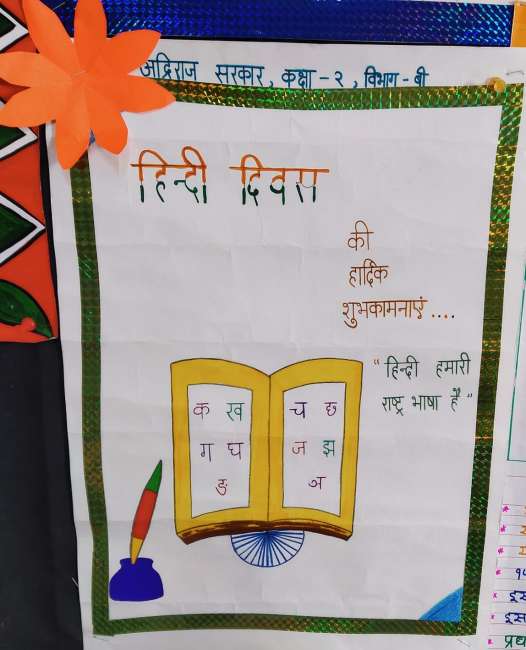 अद्रिराज सरकार, कक्षा - २, विभाग - बी
हिन्दी दिवस
की
हार्दिक
शुभकामनाएं ....
"हिन्दी हमारी
राष्ट्र भाषा है"
क ख
ग घ
ङ
च छ
ज झ
ञ